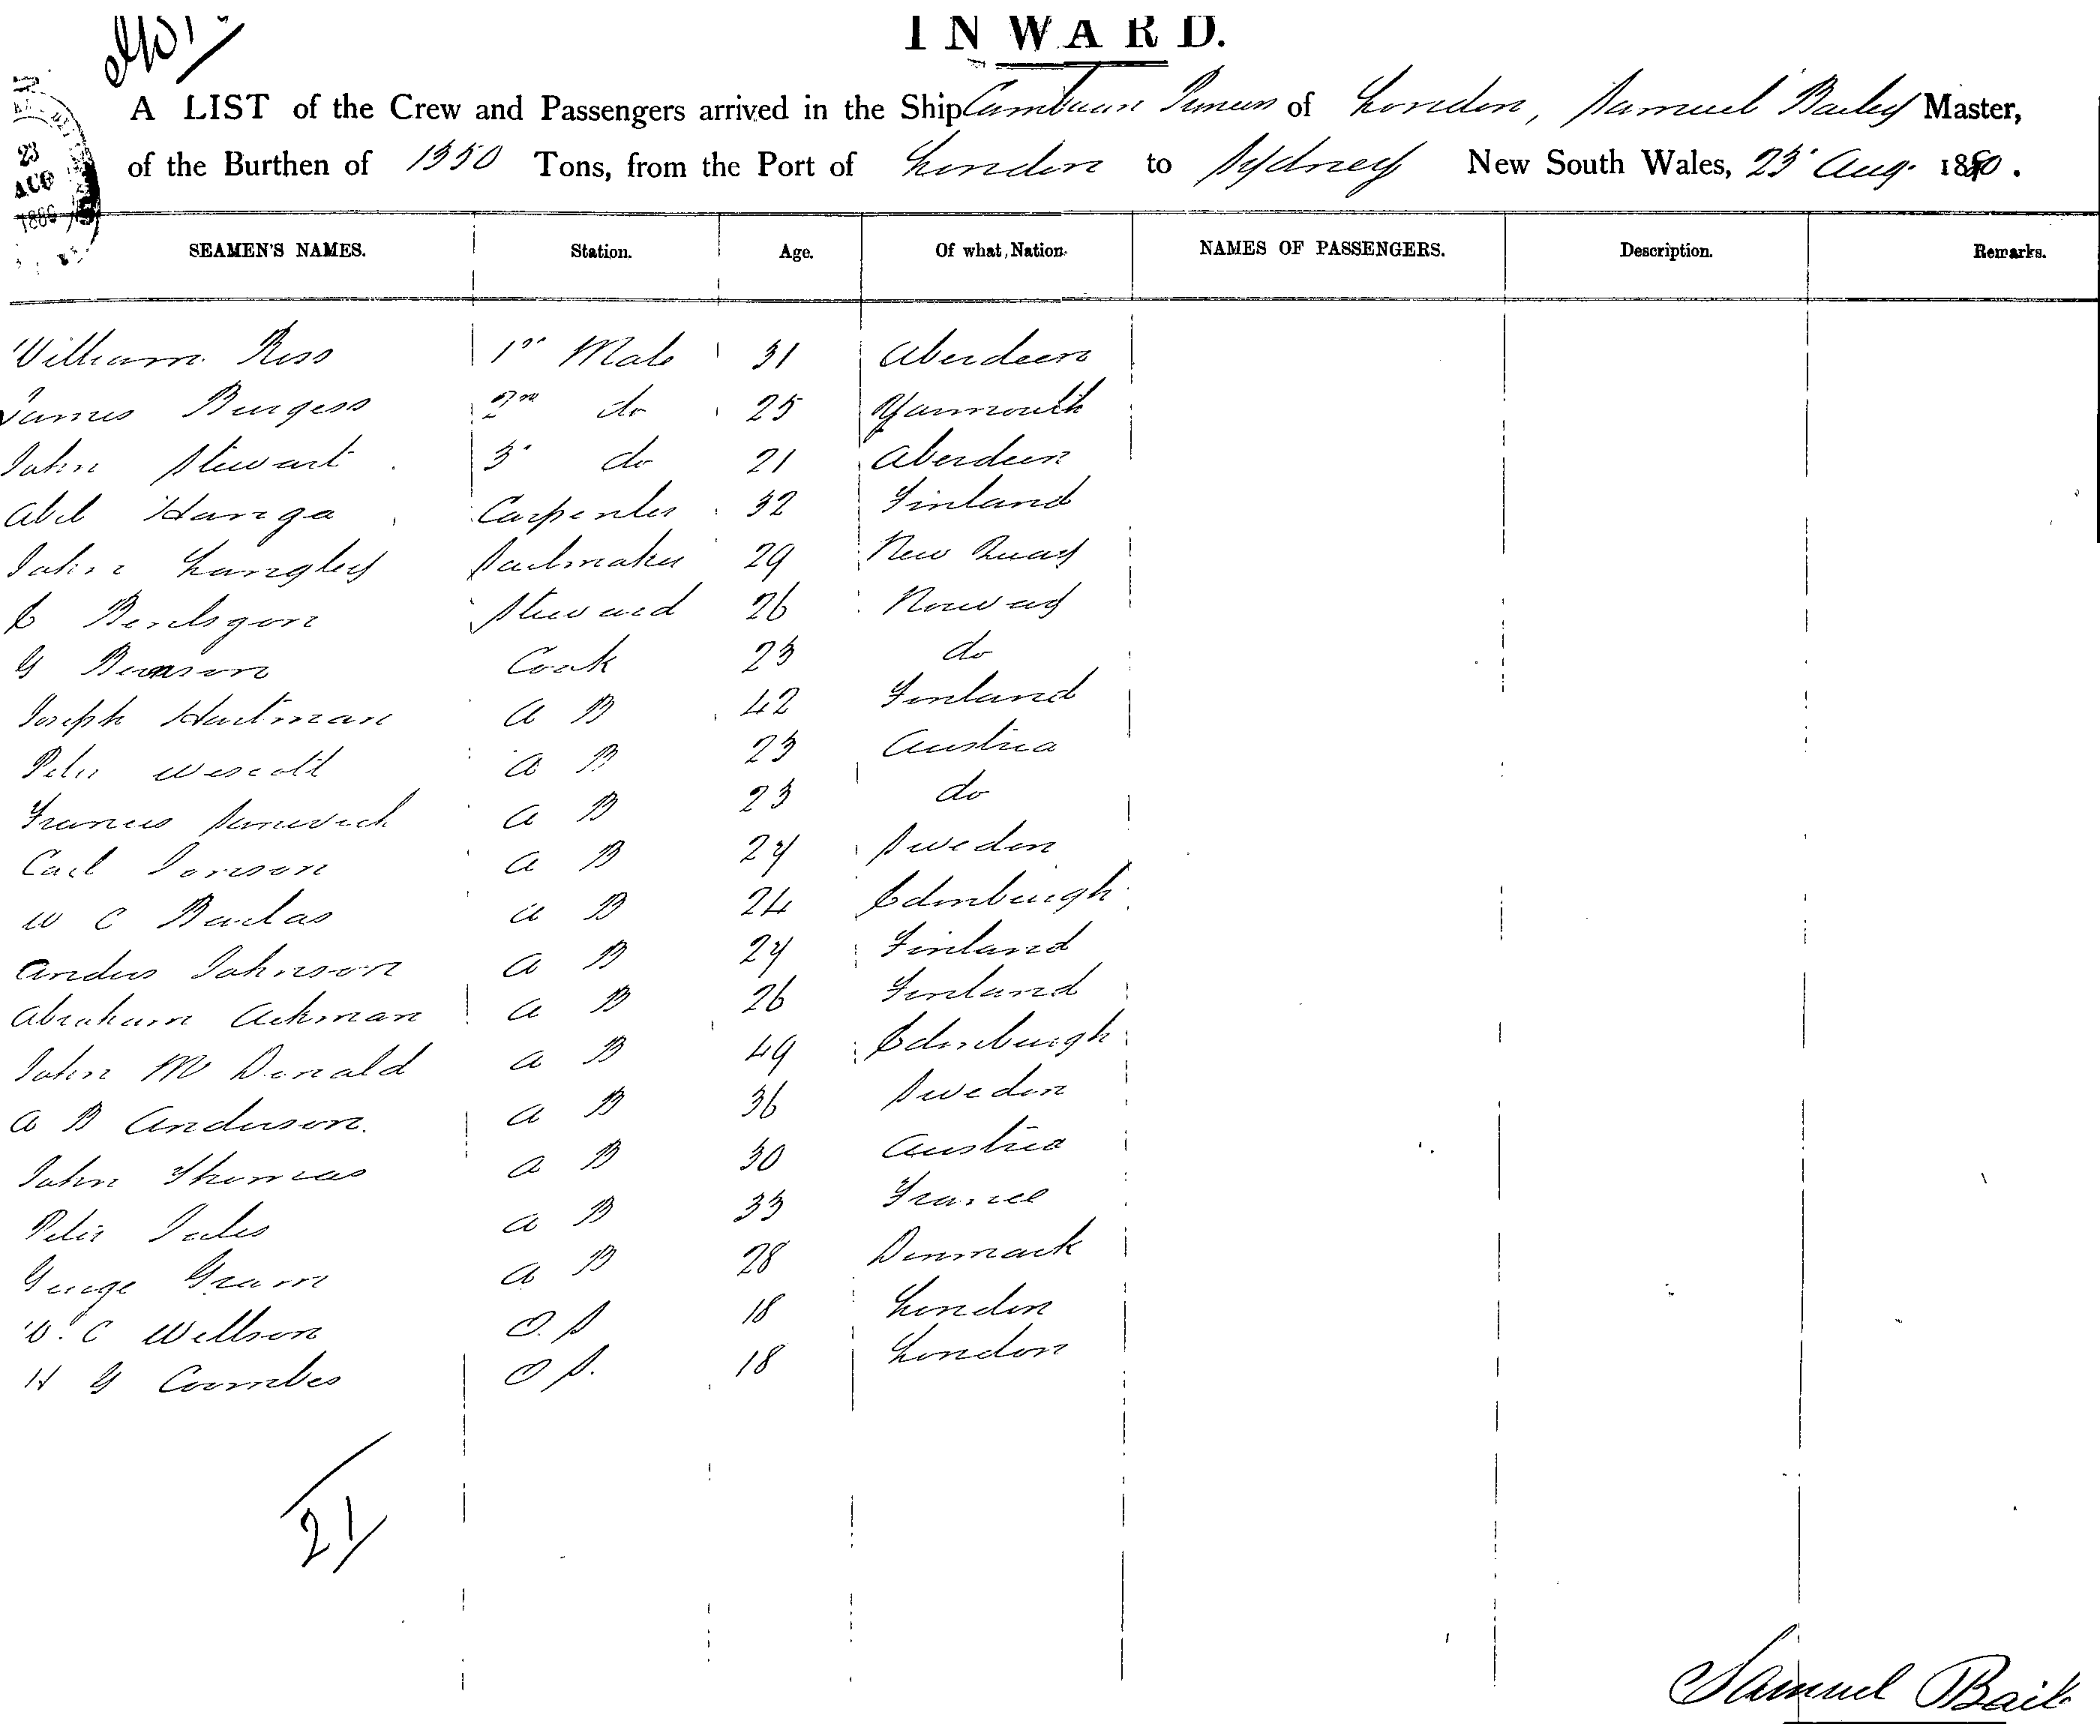 INWARD.
A LIST of the Crew and Passengers arrived in the Ship Cambrian Princess of London, Samuel Bailey Master,
of the Burthen of 1350 Tons, from the Port of London to Sydney New South Wales, 23 Aug. 1880.
23
AUG
SEAMEN'S NAMES. Station. Age. Of what Nation. NAMES OF PASSENGERS. Description. Remarks.
William Ross 1st Mate 31 Aberdeen
James Burgess 2nd do 25 Yarmouth
John Stewart 3 do 21 Aberdeen
Abel Hanga Carpenter 32 Finland
John Langley Sailmaker 29 New Quay
Steward 26 Norway
Cook 23 do
Joseph Hartman A B 42 Finland
Peter Wescott A B 23 Austria
Francis A B 23 do
Carl Jonson A B 24 Sweden
W C A B 24 Edinburgh
Anders Johnson A B 24 Finland
Abraham Ackman A B 26 Finland
John Mc Donald A B 49 Edinburgh
A B Anderson. A B 36 Sweden
John Thomas A B 30 Austria
Peter Jules A B 33 France
George Gram A B 28 Denmark
W. C Willson O. S 18 London
H G Coombes O S. 18 London
21
Samuel Baile